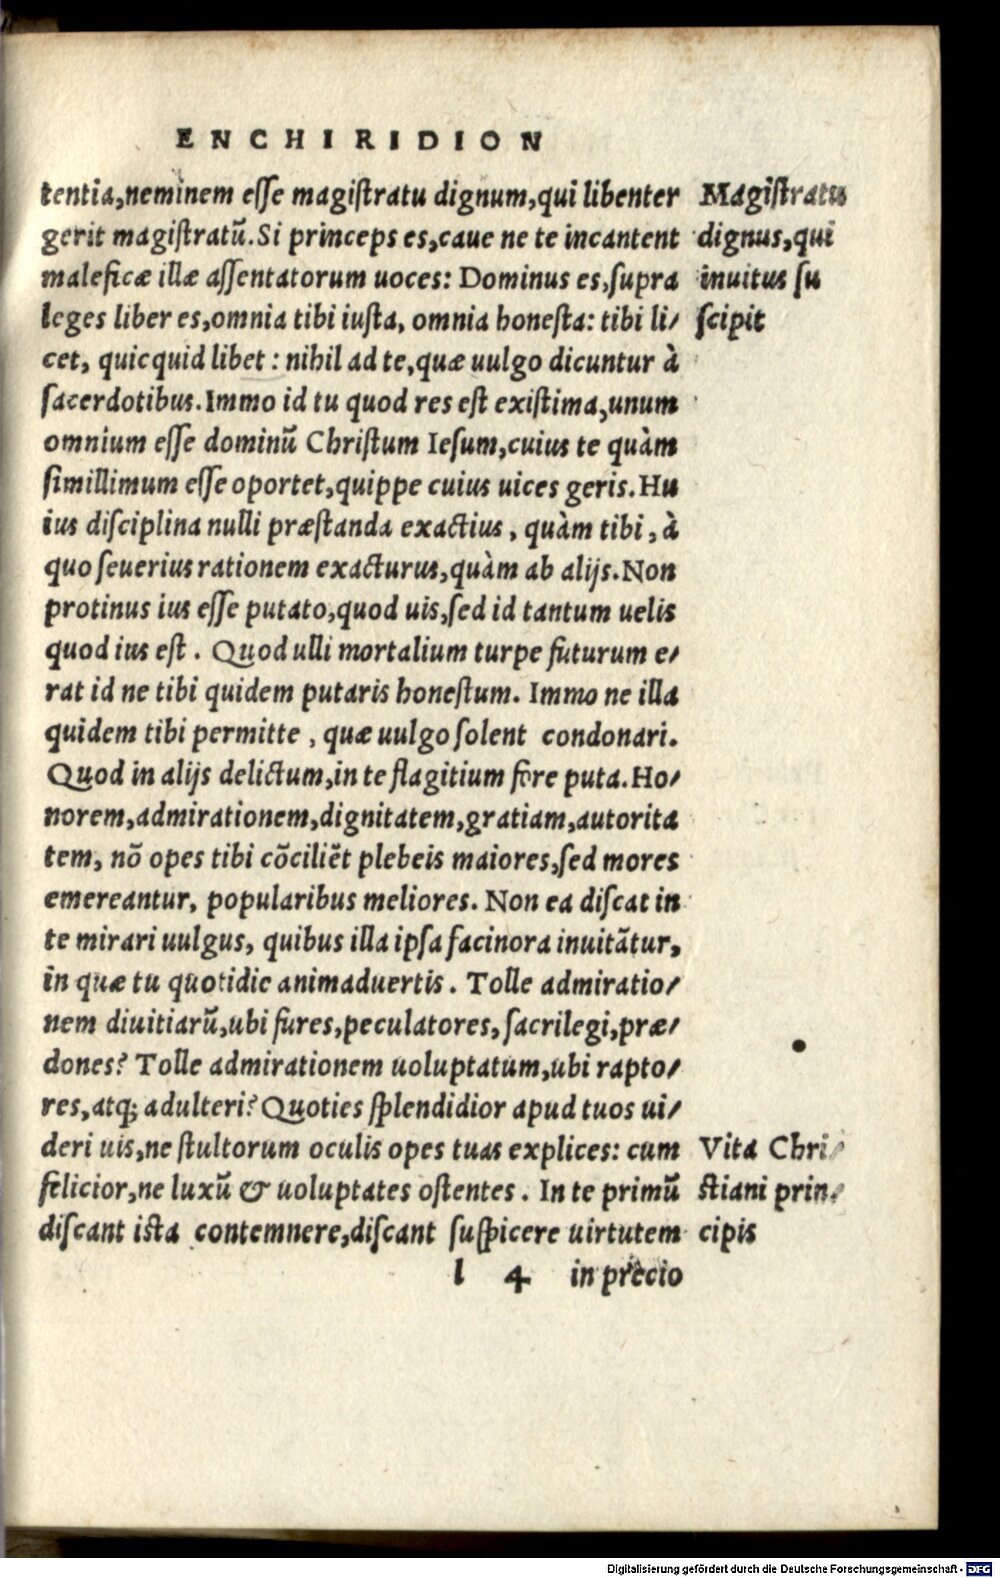 ENCHIRIDION
tentia,neminem eſſe magiſtratu dignum,qui libenter
gerit magiſtratũ.Si princeps es,caue ne te incantent
maleficæ illæ aſſentatorum uoces: Dominus es,ſupra
leges liber es,omnia tibi iuſta, omnia honeſta: tibi li/
cet, quicquid libet: nihil ad te,quæ uulgo dicuntur à
ſacerdotibus.Immo id tu quod res eſt exiſtima,unum
omnium eſſe dominũ Chriſtum Ieſum,cuius te quàm
ſimillimum eſſe oportet,quippe cuius uices geris.Hu
ius diſciplina nulli præſtanda exactius, quàm tibi, à
quo ſeuerius rationem exacturus,quàm ab alijs.Non
protinus ius eſſe putato,quod uis,ſed id tantum uelis
quod ius eſt. Quod ulli mortalium turpe futurum e/
rat id ne tibi quidem putaris honeſtum. Immo ne illa
quidem tibi permitte, quæ uulgo ſolent condonari.
Quod in alijs delictum,in te flagitium fore puta.Ho/
norem,admirationem,dignitatem,gratiam,autorita
tem, nõ opes tibi cõciliẽt plebeis maiores,ſed mores
emereantur, popularibus meliores. Non ea diſcat in
te mirari uulgus, quibus illa ipſa facinora inuitãtur,
in quæ tu quotidie animaduertis. Tolle admiratio/
nem diuitiarũ,ubi fures,peculatores, ſacrilegi,præ/
dones? Tolle admirationem uoluptatum,ubi rapto/
res,atq; adulteri? Quoties ſplendidior apud tuos ui/
deri uis,ne ſtultorum oculis opes tuas explices: cum
felicior,ne luxũ & uoluptates oſtentes. In te primũ
diſcant iſta contemnere,diſcant ſuſpicere uirtutem
l 4 in precio
Magiſtratu
dignus,qui
inuitus ſu
ſcipit
Vita Chri/
ſtiani prin/
cipis
Digitalisierung gefördert durch die Deutsche Forschungsgemeinschaft - DFG